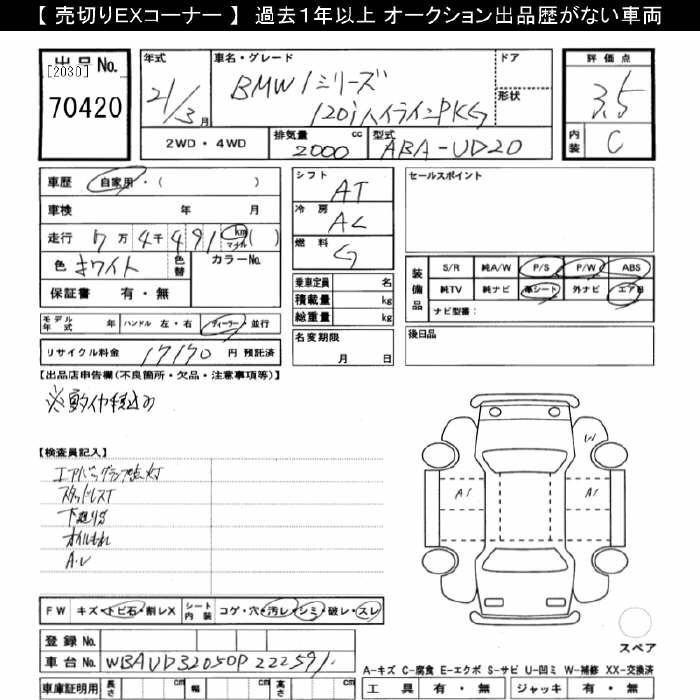 【 売切りEXコーナー 】 過去１年以上 オークション出品歴がない車両
出品No.
[2030]
70420
年式
21/3月
車名・グレード
BMW 1シリーズ
120i ハイラインPKG
ドア
形状
2WD・4WD
排気量 2000 cc
型式 ABA-UD20
評価点
3.5
内装 C
車歴 自家用・( )
車検 年 月
走行 7万4千491 km マイル ( )
色 ホワイト 色替
カラーNo.
保証書 有・無
シフト AT
冷房 AC
燃料 G
乗車定員 名
積載量 kg
総重量 kg
名変期限
月 日
セールスポイント
装備品
S/R 純A/W P/S P/W ABS
純TV 純ナビ 革シート 外ナビ エアB
ナビ型番：
後日品
モデル年式 年 ハンドル 左・右 ディーラー・並行
リサイクル料金 17170 円 預託済
【出品店申告欄(不良箇所・欠品・注意事項等)】
【検査員記入】
エアバッグランプ点灯
スタッドレスT
下廻りサ
オイルもれ
A.V
W
AT
AT
FW キズ・トビ石・割レX シート内装 コゲ・穴・汚レ・シミ・破レ・スレ
登録No.
車台No. WBAUD32050P222591
車庫証明用 長さ cm 幅 cm 高さ cm
スペア
A-キズ C-腐食 E-エクボ S-サビ U-凹ミ W-補修 XX-交換済
工具 有・無 ジャッキ 有・無